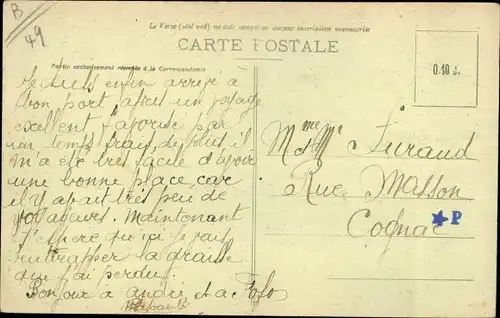 B
49
Le Verso (côté vue) ne doit comporter aucune inscription manuscrite
CARTE POSTALE
Partie exclusivement réservée à la Correspondance
0.10 c.
Je suis enfin arrivé à
bon port après un voyage
excellent favorisé par
un temps frais, de plus, il
m'a été très facile d'avoir
une bonne place, car
il y avait très peu de
voyageurs. Maintenant
j'espère qu'ici je vais
rattrapper la graisse
que j'ai perdue.
Bonjour à andré et a
Mme Mr Furaud
Rue Masson
Cognac
P